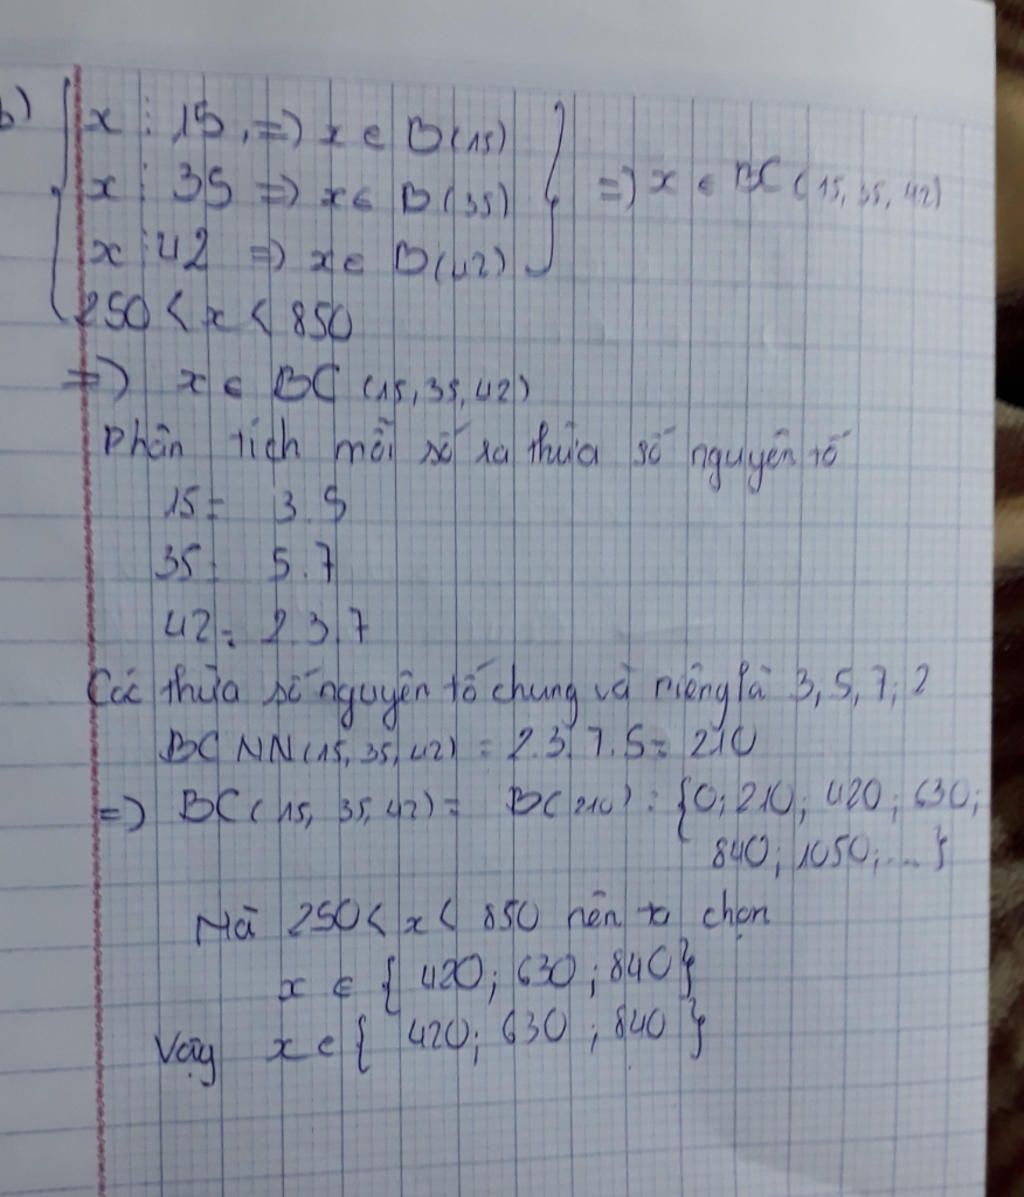 b) { x ⋮ 15, => x ∈ B(15) } => x ∈ BC (15, 35, 42)
x ⋮ 35 => x ∈ B(35)
x ⋮ 42 => x ∈ B(42)
250 < x < 850
=> x ∈ BC (15, 35, 42)
Phân tích mỗi số ra thừa số nguyên tố
15 = 3.5
35 = 5.7
42 = 2.3.7
Các thừa số nguyên tố chung và riêng là 3, 5, 7, 2
BCNN(15, 35, 42) = 2.3.7.5 = 210
=> BC(15, 35, 42) = B(210) = {0; 210; 420; 630;
840; 1050; ...}
Mà 250 < x < 850 nên ta chọn
x ∈ { 420; 630; 840}
Vậy x ∈ { 420; 630; 840 }